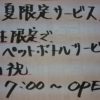 夏限定サービス
限定で
ペットボトルサービス
祝
17:00～OPE